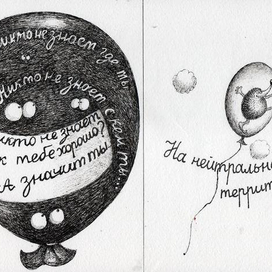 Никто не знает где ты
Никто не знает с кем ты...
Никто не знает
к тебе хорошо?
А значит ты
На нейтральн
террит